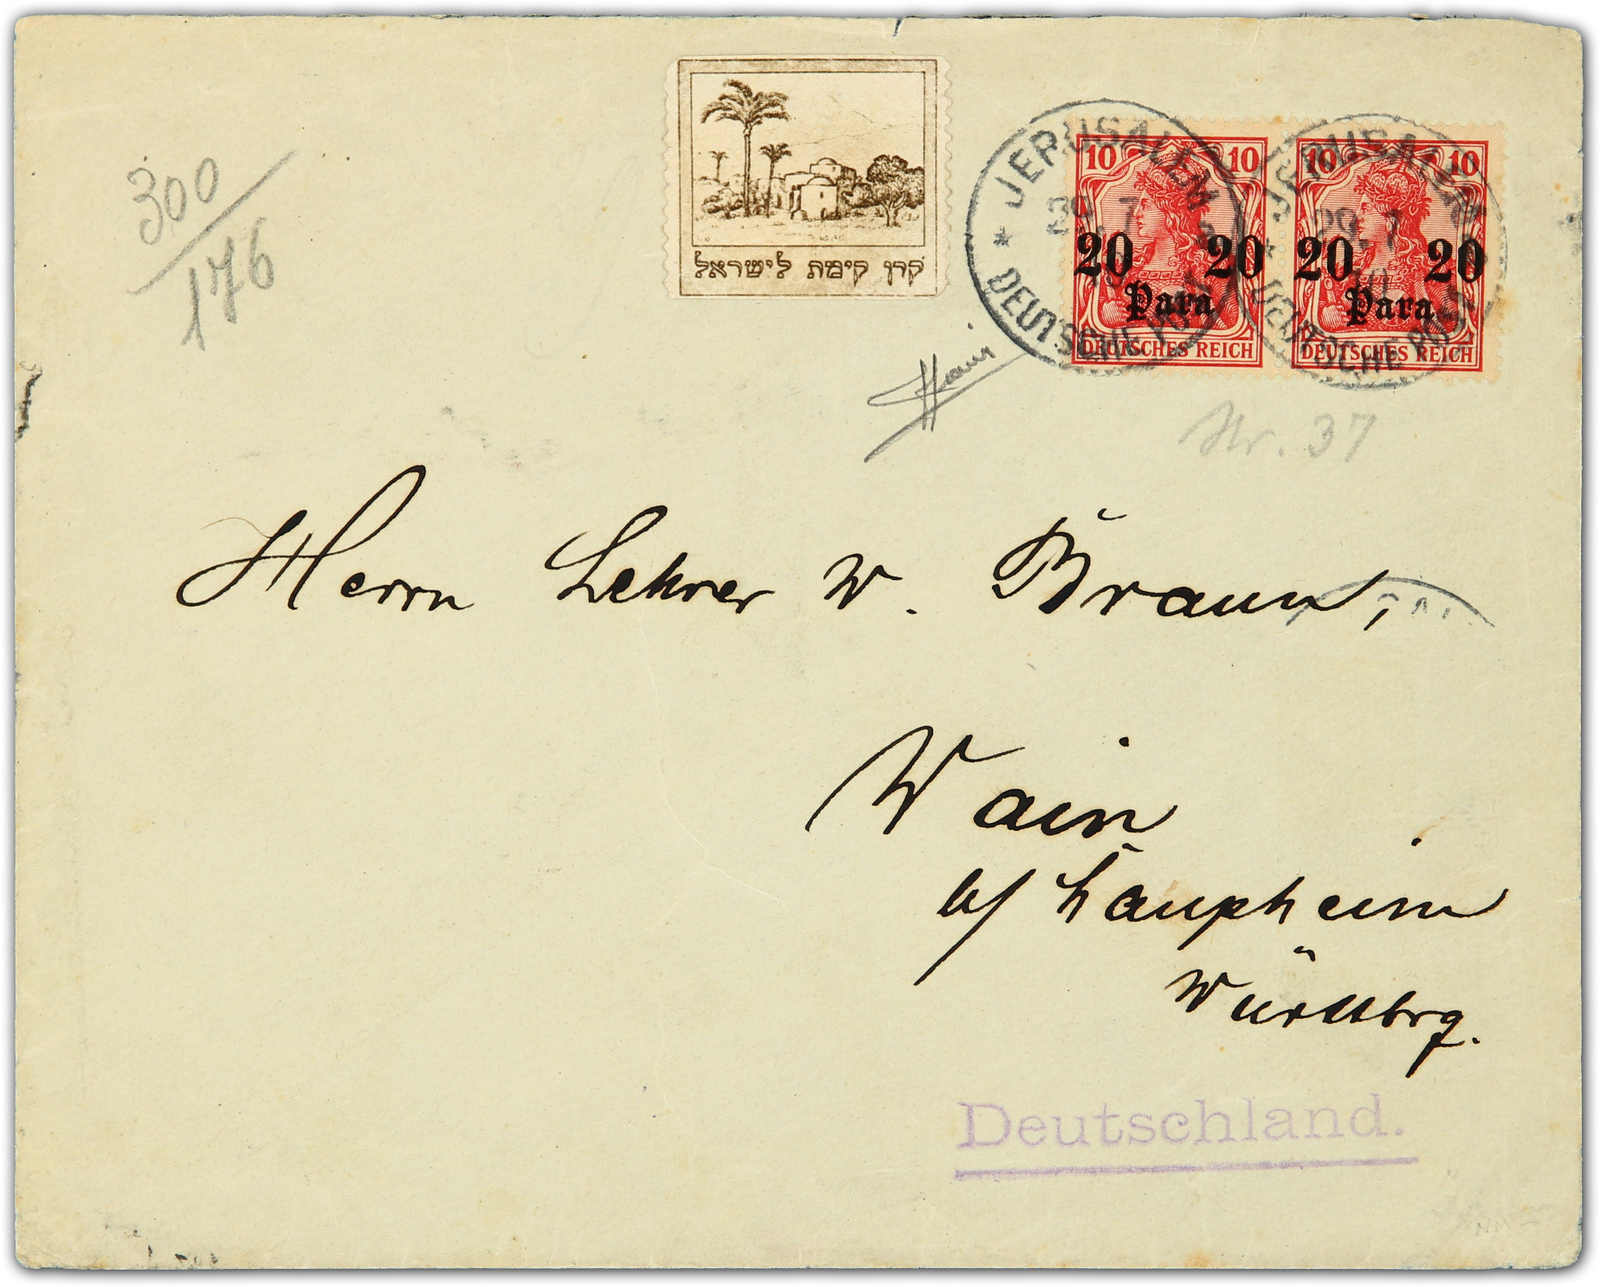 300
176
קרן קימת לישראל
JERUSALEM
29. 7
DEUTSCHE POST
10 10
20 20
Para
DEUTSCHES REICH
JERUSALEM
29. 7
DEUTSCHE POST
10 10
20 20
Para
DEUTSCHES REICH
Nr. 37
Herrn Lehrer W. Braun,
Wain
b/ Laupheim
Württbrg.
Deutschland.